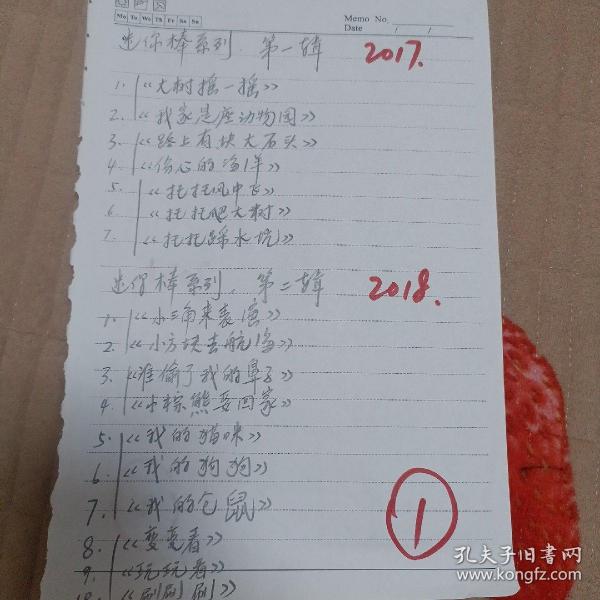 Mo Tu We Th Fr Sa Su
Memo No.
Date / /
迷你棒系列. 第一辑 2017.
1. 《大树摇一摇》
2. 《我家是座动物园》
3. 《路上有块大石头》
4. 《伤心的洛洋》
5. 《托托风中飞》
6. 《托托爬大树》
7. 《托托踩水坑》
迷你棒系列. 第二辑 2018.
1. 《小三角来表演》
2. 《小方块去航海》
3. 《谁偷了我的鼻子》
4. 《小棕熊要回家》
5. 《我的猫咪》
6. 《我的狗狗》
7. 《我的仓鼠》
8. 《变变看》
9. 《玩玩看》
10. 《刷刷刷》
1
孔夫子旧书网
www.kongfz.com